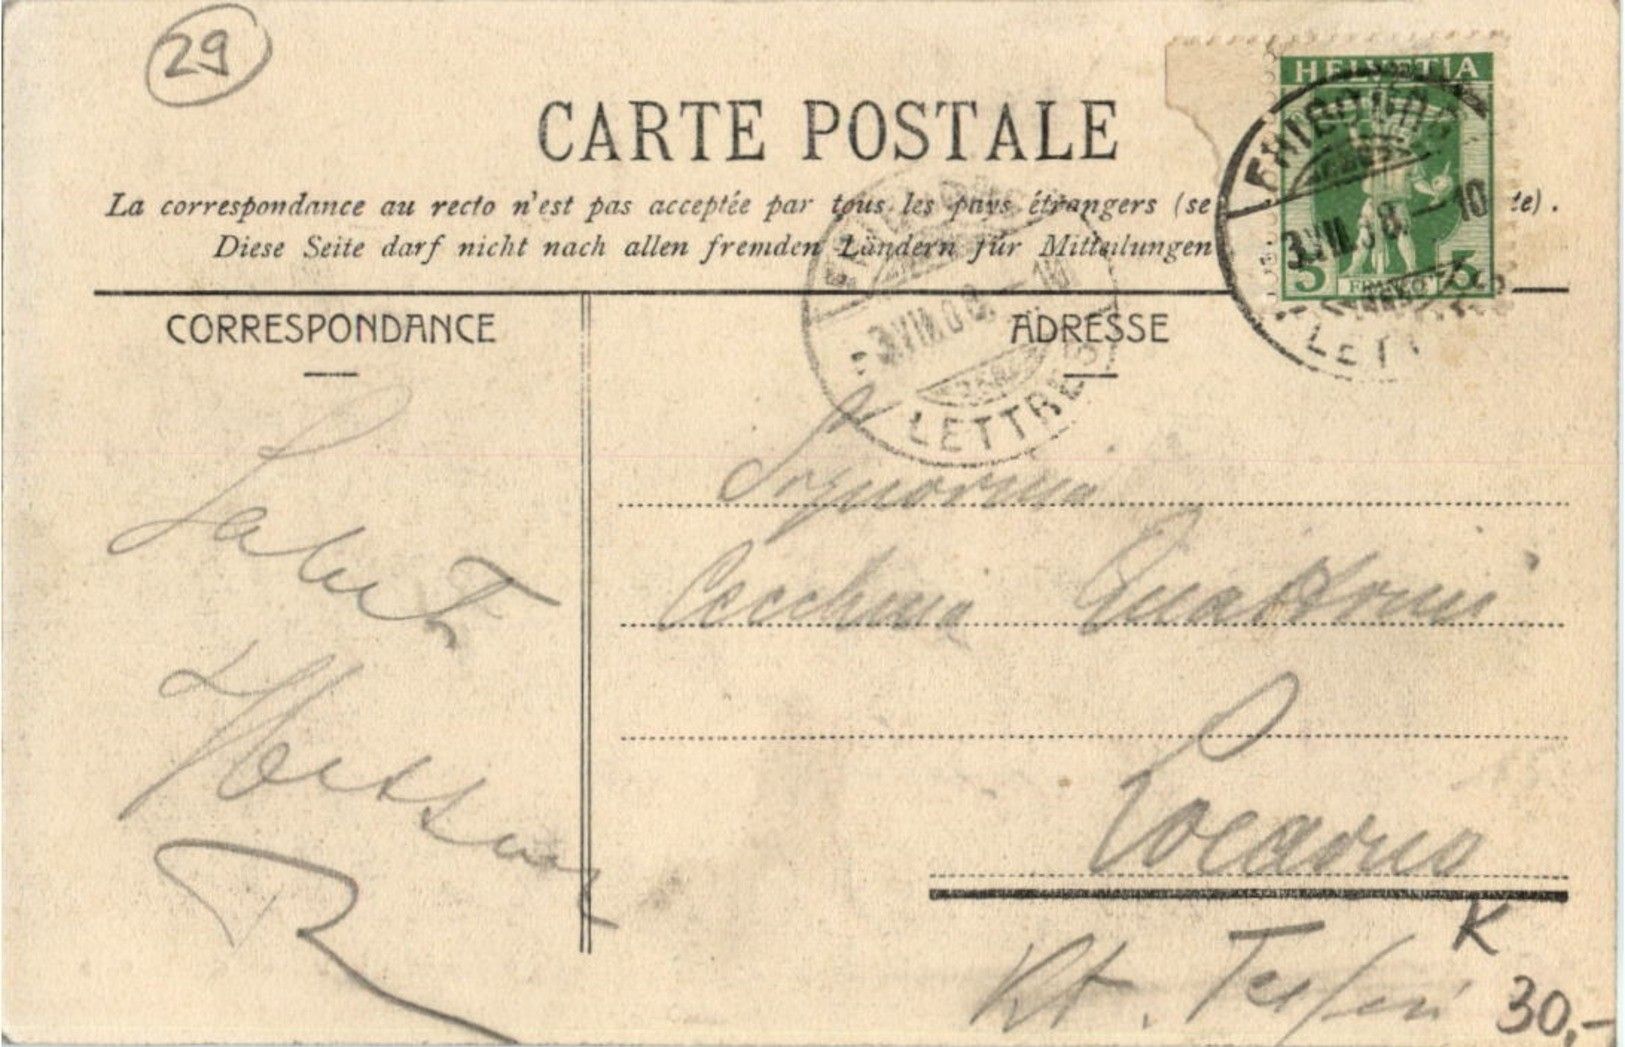 29
CARTE POSTALE
HELVETIA
La correspondance au recto n'est pas acceptée par tous les pays étrangers (se te).
Diese Seite darf nicht nach allen fremden Ländern für Mitteilungen
FRIBOURG
3.VII.08.-10
LETTRES
5 FRANCO 5
FRIBOURG
3.VII.08.-10
LETTRES
CORRESPONDANCE
ADRESSE
Signorina
Cecchina Quattrini
Locarno
Kt. Tessin
K
30,-